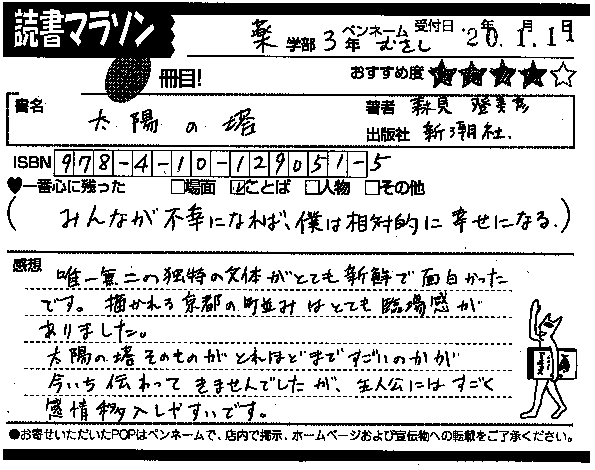 読書マラソン
薬 学部 3年 ペンネーム むさし 受付日 20年 1月 19日
冊目!
おすすめ度 ★★★★☆
書名 太陽の塔
著者 森見登美彦
出版社 新潮社.
ISBN 978-4-10-129051-5
♥一番心に残った □場面 ☑ことば □人物 □その他
(みんなが不幸になれば、僕は相対的に幸せになる.)
感想
唯一無二の独特の文体がとても新鮮で面白かった
です。描かれる京都の町並みはとても臨場感が
ありました。
太陽の塔そのものがどれほどまですごいのかが
今いち伝わってきませんでしたが、主人公にはすごく
感情移入しやすいです。
●お寄せいただいたPOPはペンネームで、店内で掲示、ホームページおよび宣伝物への転載をご了承ください。